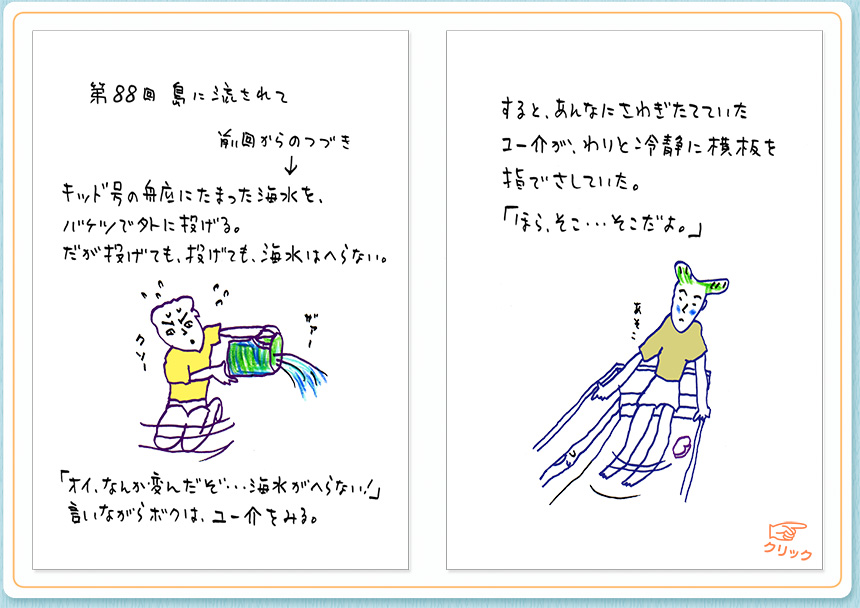 第88回 島に流されて
前回からのつづき
キッド号の舟底にたまった海水を、
バケツで外に投げる。
だが投げても、投げても、海水はへらない。
クソー
ザァー
「オイ、なんか変んだぞ･･･海水がへらない！」
言いながらボクは、ユー介をみる。
すると、あんなにさわぎたてていた
ユー介が、わりと冷静に横板を
指でさしていた。
「ほら、そこ･･･そこだよ。」
あそこ
クリック